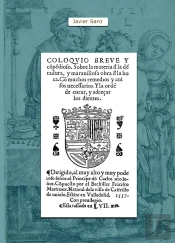 Javier Sanz
COLOQVIO BREVE Y
cõpẽdioso. Sobre la materia dela dẽ
tadura, y marauillosa obra dela bo
ca. Cõ muchos remedios y aui
sos necessarios. Y la ordẽ
de curar, y adreçar
los dientes.
Dirigido, al muy alto y muy pode
roso señor el Principe dõ Carlos nro se
ñor. Cõpuesto por el Bachiller Frãcisco
Martinez. Natural dela villa de Castrillo
de onielo. Estãte en Valladolid. 1557.
Con preuilegio.
Esta tassado en LVII. mrs.